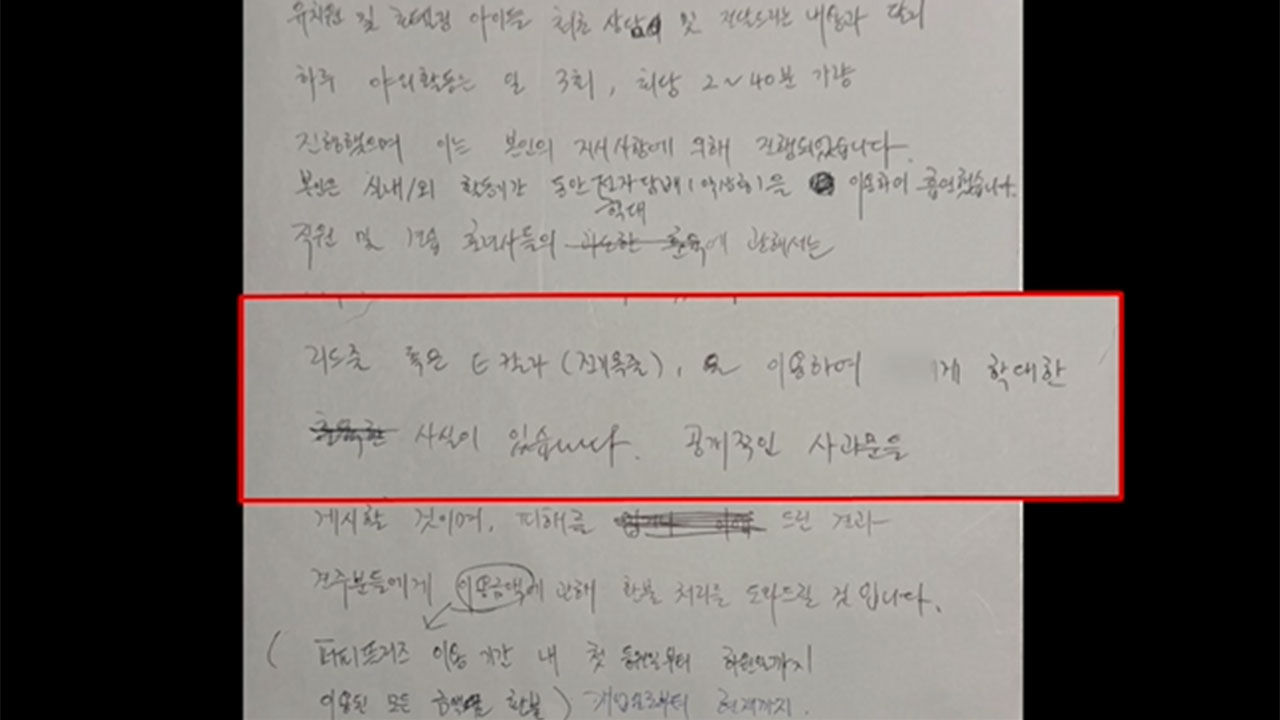 유치원 및 호텔링 아이들 최초 상담 및 전달드리는 내용과 달리
하루 야외활동는 일 3회, 회당 2~40분 가량
진행했으며 이는 본인의 지시사항에 의해 진행되었습니다.
본인은 실내/외 활동시간 동안 전자담배(액상형)을 이용하여 흡연했습니다.
학대
직원 및 견습 훈련사들의 과도한 훈육에 관해서는
리드줄 혹은 E칼라 (전기목줄), 을 이용하여 게 학대한
사실이 있습니다. 공개적인 사과문을
게시할 것이며, 피해를 드린 결과
견주분들에게 이용금액에 관해 환불 처리를 도와드릴 것 입니다.
( 퍼피프렌즈 이용 기간 내 첫 등원일부터 하원일까지
이용된 모든 금액을 환불 ) 개업일로부터 현재까지.